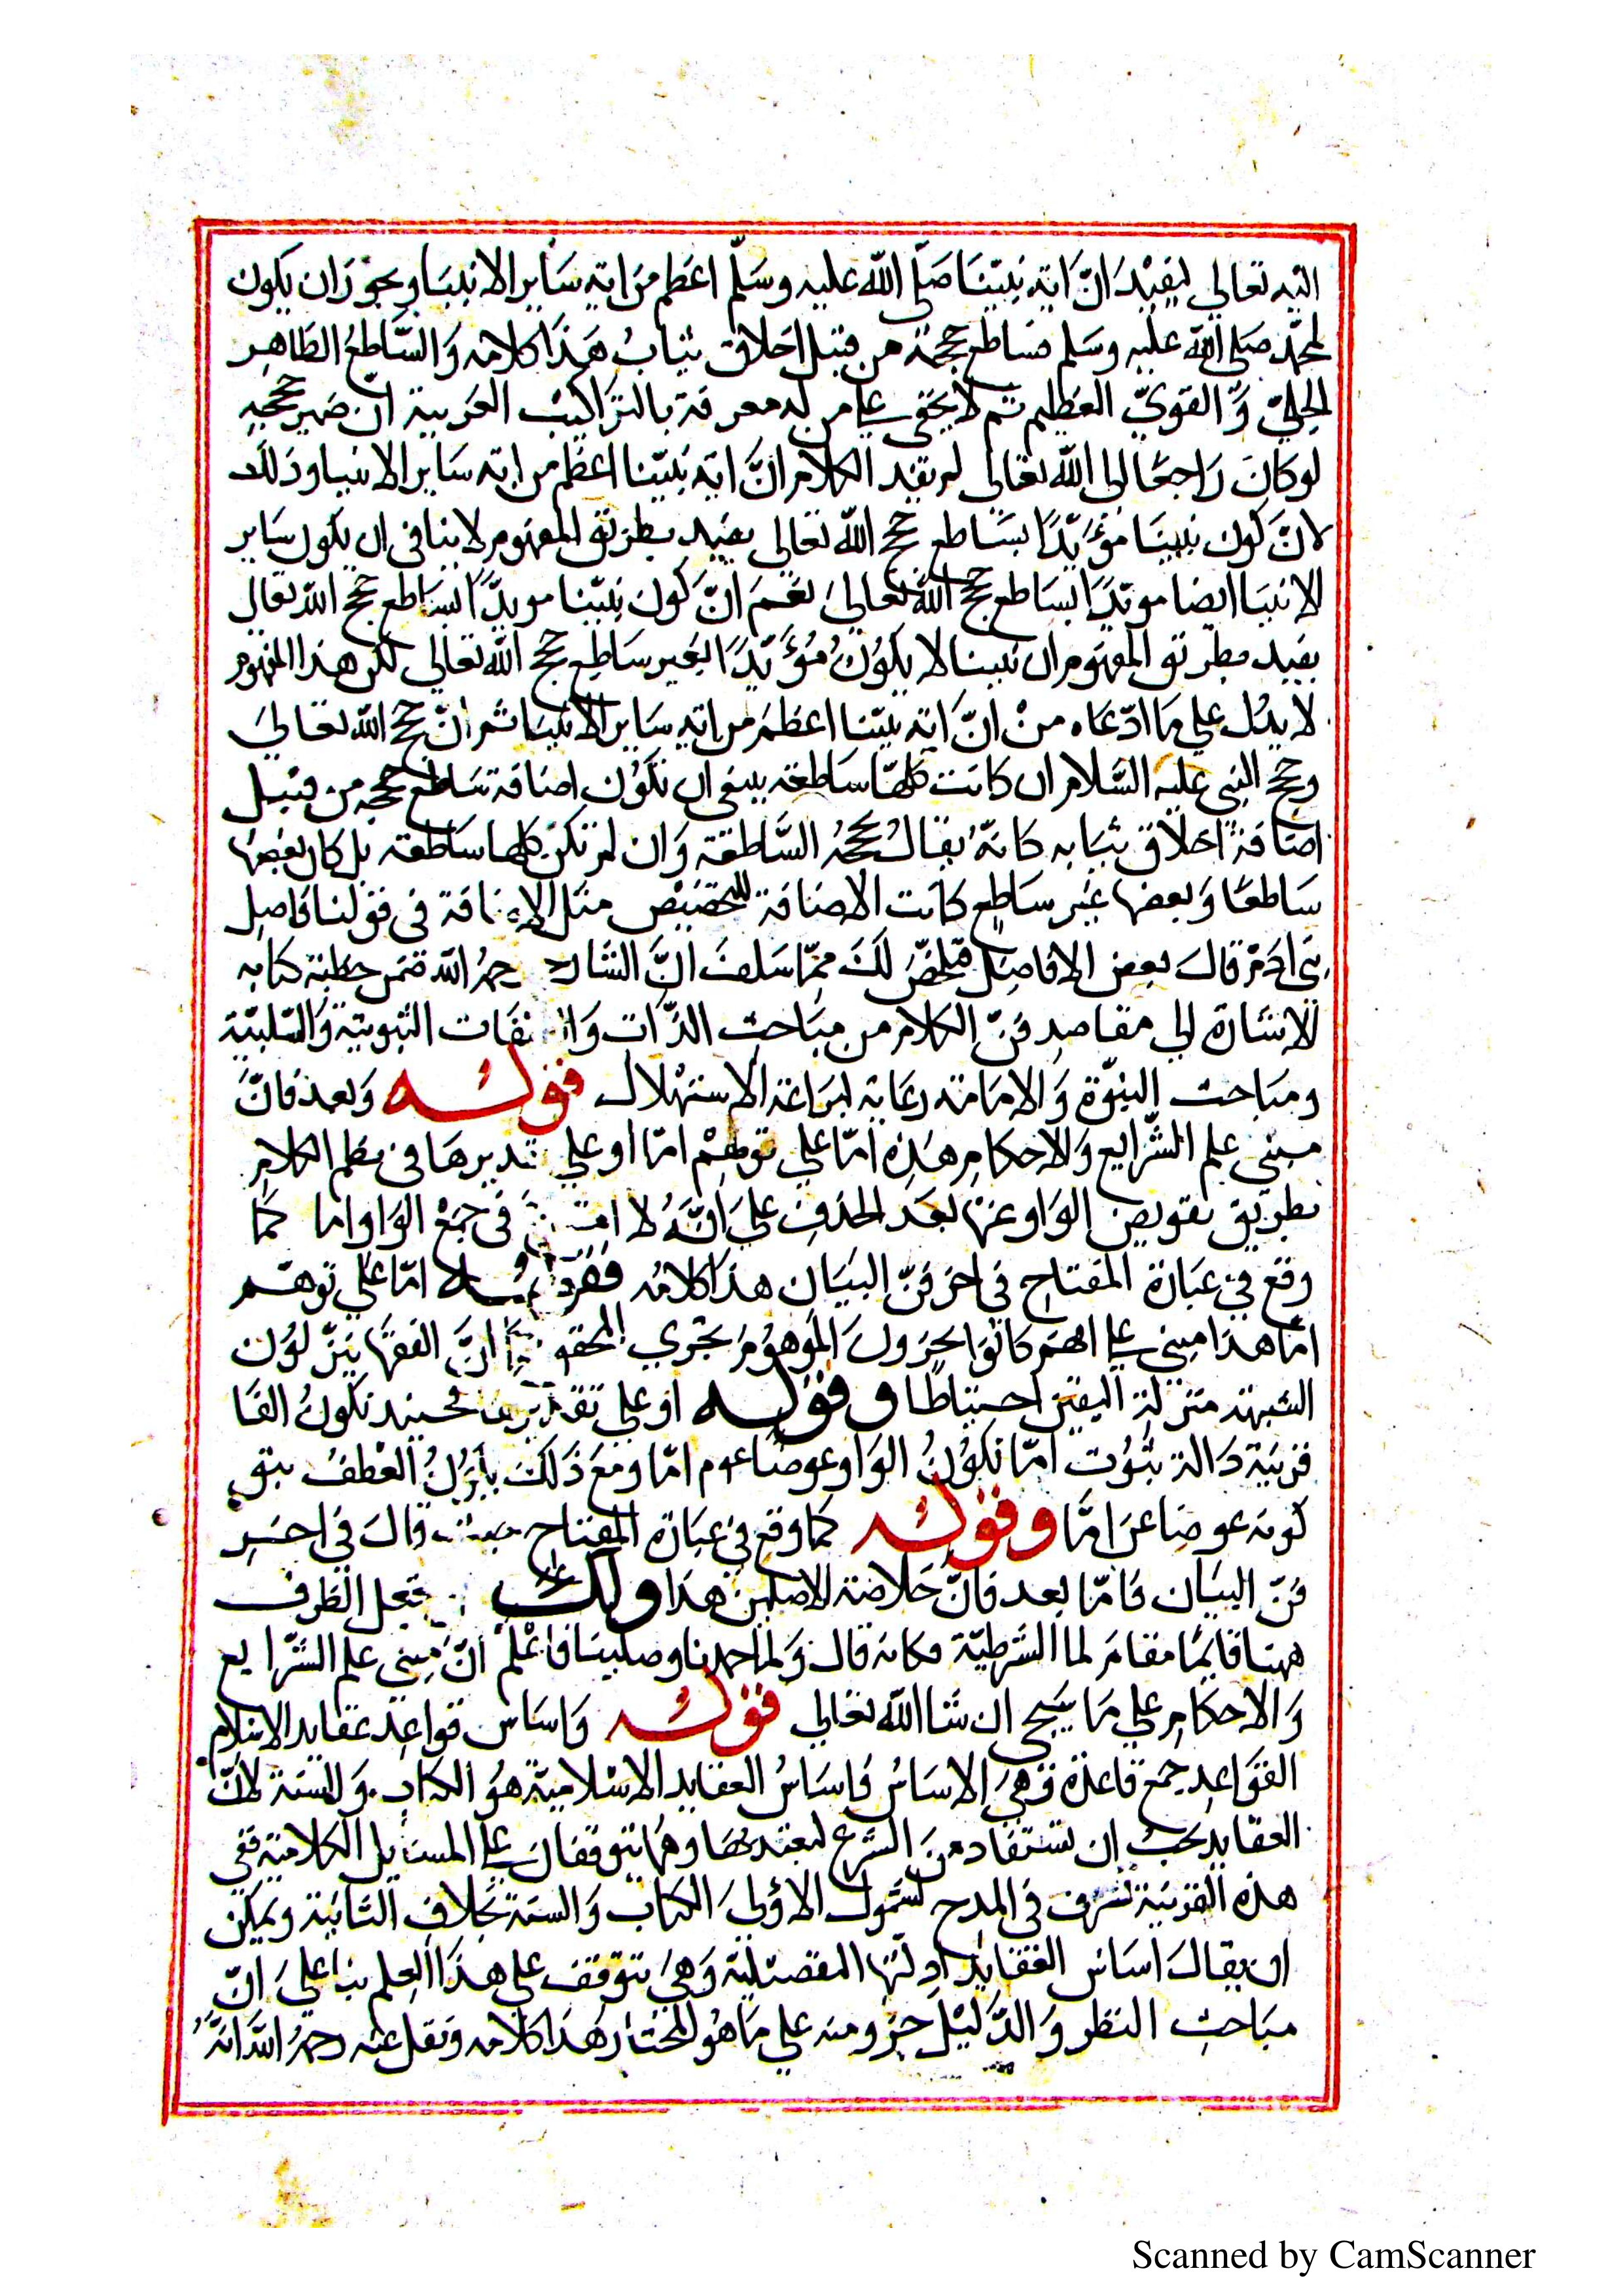 اليه تعالى ليفيد ان اية نبيّنا صلّى الله عليه وسلّم اعظم من اية ساير الانبيا ويجوز ان يكون
لمحمّد صلى الله عليه وسلم فساطع حججه من قبيل اخلاق ثياب هذا كلامه والسّاطع الظاهر
الجليّ والقويّ العظيم ثم لا يخفى على من له معرفة بالتراكيب العربية ان ضمير حججه
لو كان راجعا الى الله تعالى لم يفد الكلام انّ اية نبيّنا اعظم من اية ساير الانبيا وذلك
لانّ كون نبينا مؤيّدًا بساطع حجج الله تعالى يفيد بطريق المفهوم لا ينافى ان يكون ساير
الانبيا ايضا مويّدًا بساطع حجج الله تعالى نعم انّ كون نبيّنا مويدًّا بساطع حجج الله تعالى
يفيد بطريق المفهوم ان نبينا لا يكون مؤيّدًا بغير ساطع حجج الله تعالى لكن هذا المفهوم
لا يدل على ما ادّعاه من انّ اية نبيّنا اعظم من اية ساير الانبيا ثم انّ حجج الله تعالى
وحجج النبى عليه السّلام ان كانت كلهّا ساطعة ينبغى ان تكون اضافة ساطع حججه من قبيل
اضافة اخلاق ثيابه كانّه يقال حججه السّاطعة وان لم تكن كلها ساطعة بل كان بعضها
ساطعًا وبعضها غير ساطع كانت الاضافة للتخصيص مثل الاضافة فى قولنا فاضل
بنى ادم قال بعض الافاضل فتلخّص لك ممّا سلف انّ الشارح رحمه الله ضمن خطبة كتابه
للاشارة الى مقاصد فنّ الكلام من مباحث الذّات والصفات الثبوتية والسّلبيّة
ومباحث النبوّة والامامة رعاية لبراعة الاستهلال قوله وبعد فانّ
مبنى علم الشّرايع والاحكام هذه امّا على توهّم امّا او على تقديرها فى نظم الكلام
بطريق تعويض الواو عنها بعد الحذف على انّه لا امتناع فى جمع الواو واما كما
وقع فى عبارة المفتاح فى اخر فنّ البيان هذا كلامه فقوله امّا على توهّم
امّا هذا مبني على انهم كانوا يجرون الموهوم مجرى المحقق كما انّ الفقها ينزّلون
الشبهة منزلة اليقين احتياطًا وقوله او على تقديرها فحينيذ تكون الفا
قرينة دالة بثبوت امّا تكون الواو عوضا عن امّا ومع ذلك يايزل العطف بتق
كونه عوضا عن امّا وقوله كما وقع فى عبارة المفتاح حيث قال فى اخر
فنّ البيان فامّا بعد فانّ خلاصة الاصلين هذا ولك ان تجعل الظرف
ههنا قايمًا مقام لما الشرطيّة فكانه قال ولما حمدنا وصلينا فاعلم انّ مبنى علم الشّرايع
والاحكام على ما سيجى ان شا الله تعالى قوله واساس قواعد عقايد الاسلام
القواعد جمع قاعدة وهى الاساس فاساس العقايد الاسلاميّة هو الكتاب والسنة لانّ
العقايد يجب ان تستفاد من الشرع ليعتد بها وهما يتوقفان على المسايل الكلامية ففى
هذه القرينة شرف فى المدح لشمول الاولى الكتاب والسنة بخلاف الثانية ويمكن
ان يقال اساس العقايد ادلّتها التفصيليّة وهى يتوقف على هذا العلم بنا على انّ
مباحث النظر والدّليل جزو منه على ما هو المختار هذا كلامه ونقل عنه رحمه الله انه
Scanned by CamScanner